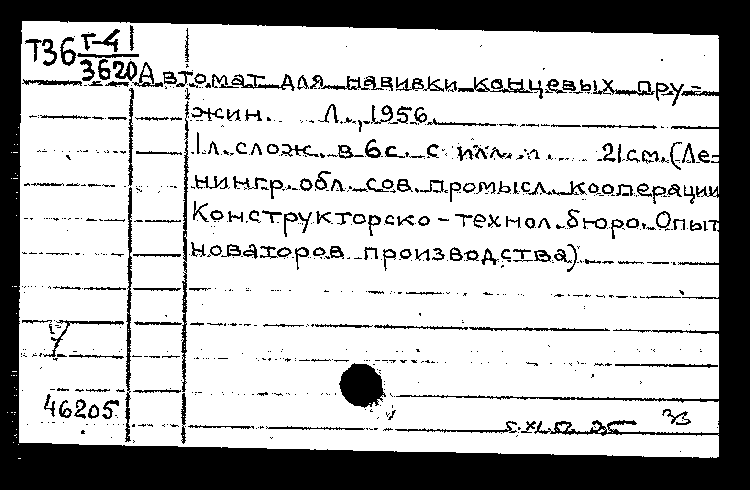 Т36 Т-41
3620
Автомат для навивки концевых пру=
жин. Л., 1956.
1 л. слож. в 6 с. с илл. 21 см. (Ле=
нингр. обл. сов. промысл. кооперации
Конструкторско-технол. бюро. Опыт
новаторов производства).
У
46205